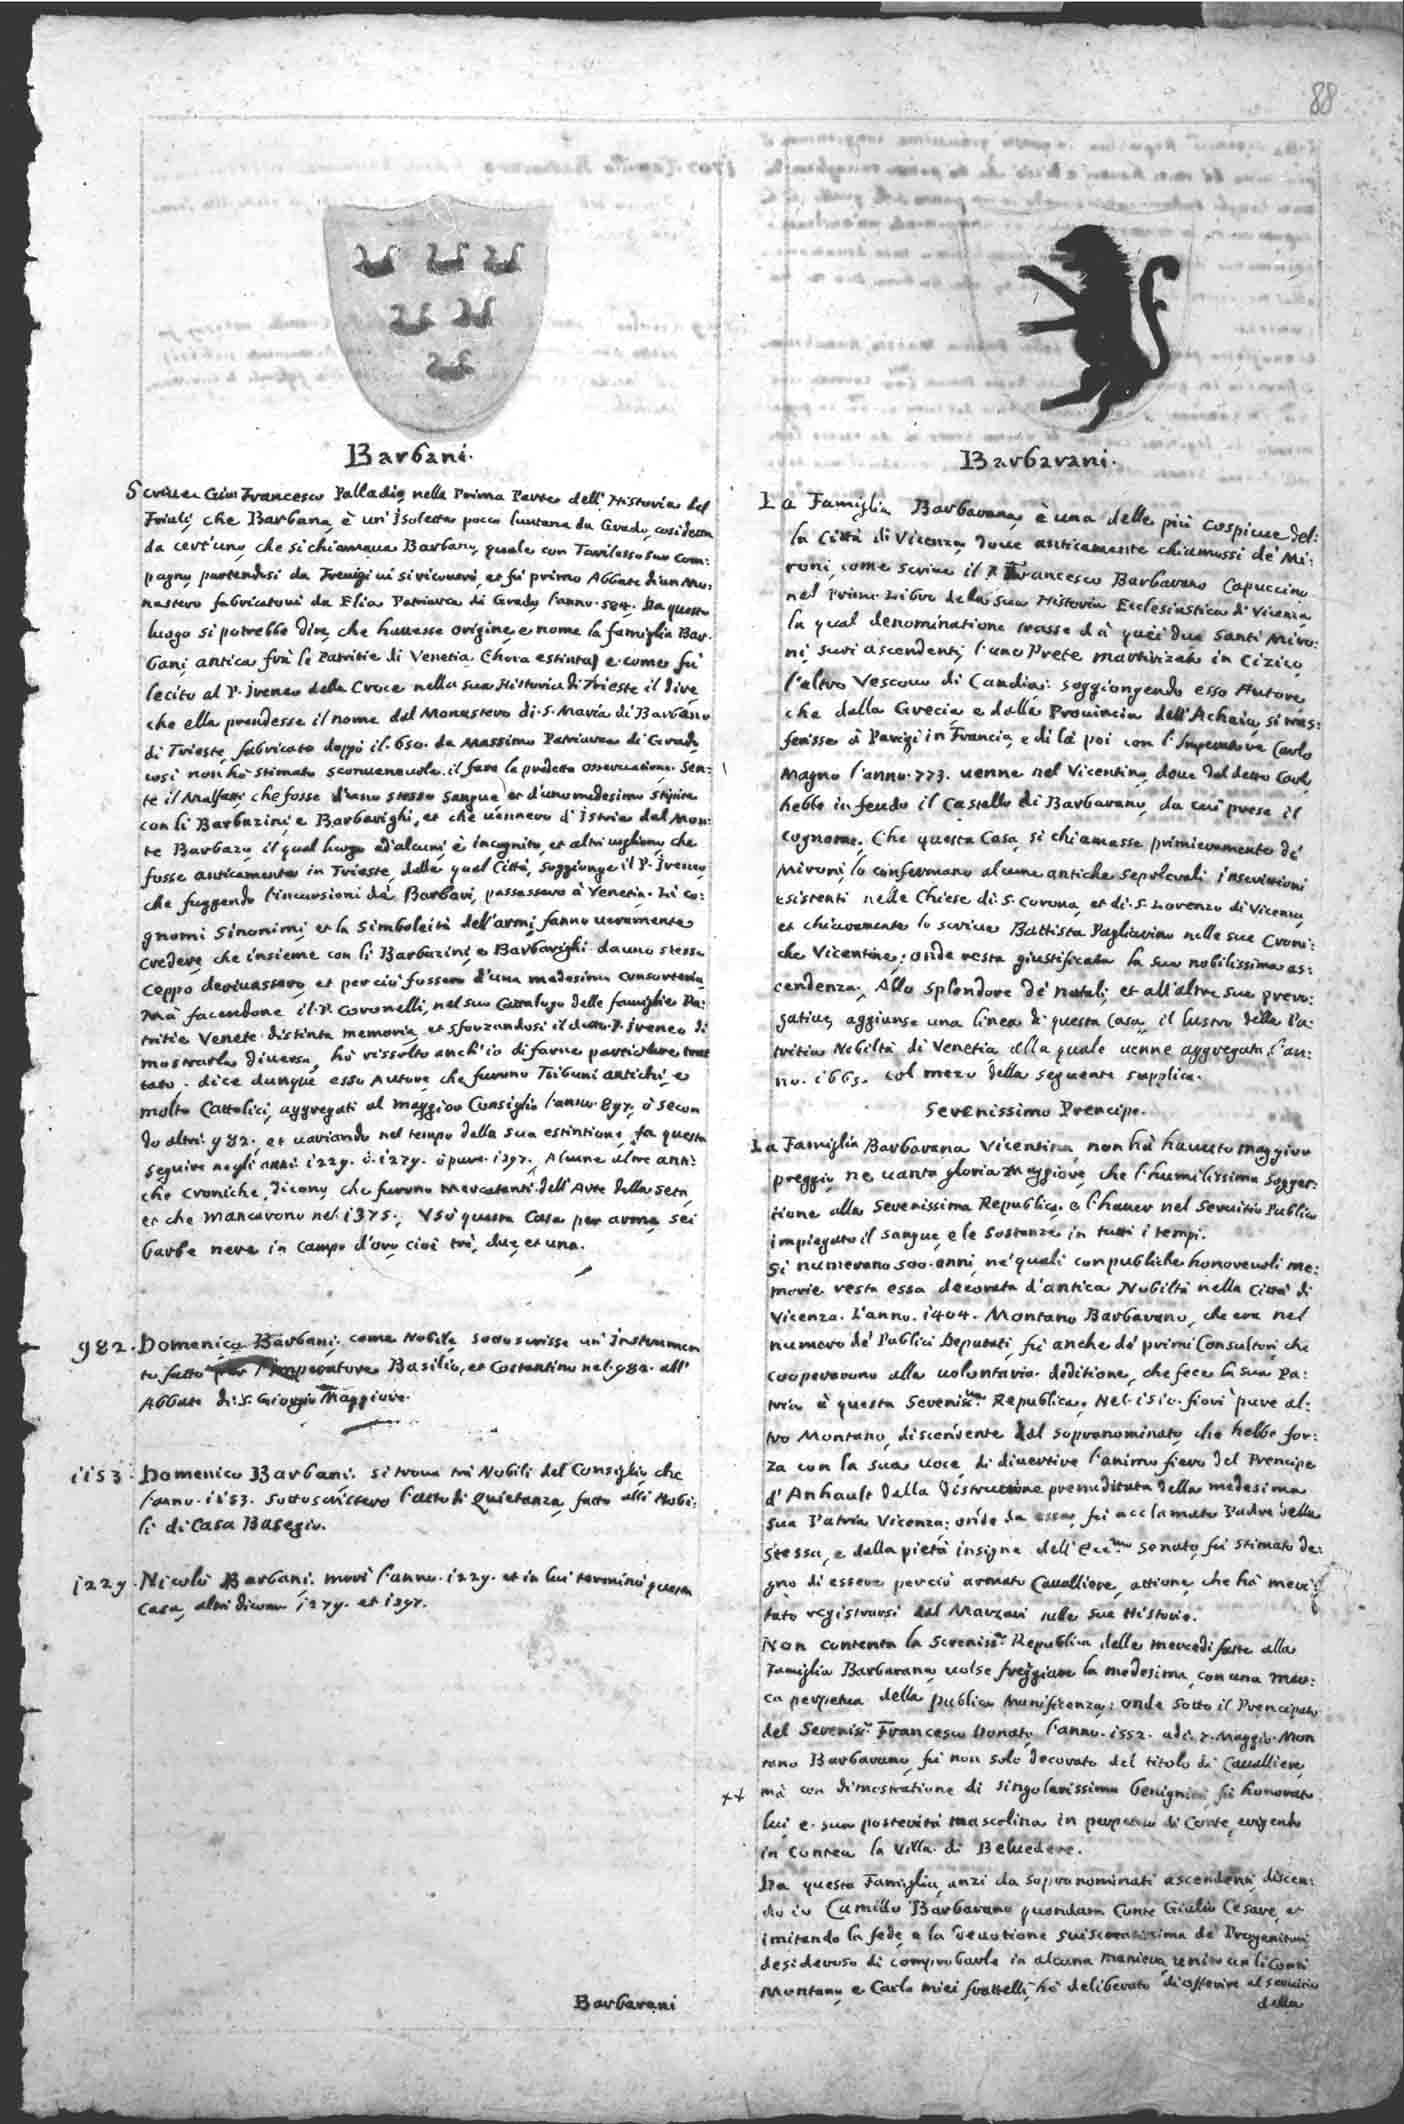 88
Barbani.
Scriue Gio: Francesco Palladio nella Prima Parte dell'Historia del
Friuli, che Barbana è un'Isoletta poco luntana da Grado, cosi detta
da cert'uno, che si chiamaua Barbano, quale con Tarilesso suo com:
pagno partendosi da Treuigi ui si ricourò, et fù primo Abbate d'un Mo:
nastero fabricatoui da Elia Patriarca di Grado l'anno. 584. Da questo
luogo si potrebbe dire, che hauesse origine, e nome la famiglia Bar:
bani, antica frà le Patritie di Venetia (hora estinta) e come fù
lecito al P. Ireneo della Croce nella sua Historia di Trieste il dire
che ella prendesse il nome dal Monastero di. S. Maria di Barbano
di Trieste, fabricato doppò il. 650. da Massimo Patriarca di Grado,
cosi non hò stimato sconueneuole il fare la predetta osseruatione. Sen:
te il Malfatti, che fosse d'uno stesso sangue, et d'uno medesimo stipite
con li Barbarini, e Barbarighi, et che uennero d'Istria dal Mon:
te Barbaro, il qual luogo ad alcuni è incognito, et altri uogliono, che
fosse anticamente in Trieste, dalla qual Città, soggionge il P. Ireneo,
che fuggendo l'incursioni dà Barbari, passassero à Venetia. Li co:
gnomi sinonimi, et la simboleità dell'armi, fanno ueramente
credere, che insieme con li Barbarini, e Barbarighi da uno stesso
ceppo deriuassero, et per ciò fossero d'una medesima consorteria.
Mà facendone il. P. Coronelli, nel suo Cattalogo delle famiglie Pa:
tritie Venete distinta memoria, et sforzandosi il detto. P. Ireneo di
mostrarla diuersa, hò rissolto anch'io di farne particolare trat
tato. dice dunque esso Autore, che furono Tribuni antichi, e
molto Cattolici, aggregati al maggior Consiglio l'anno. 897. ò secon
do altri. 982. et uariando nel tempo della sua estintione, fa questa
seguire negli anni. 1229. ò. 1279. ò pure. 1297. Alcune altre anti:
che Croniche, dicono, che furono Mercatanti dell'Arte della Seta,
et che mancarono nel. 1375. Usò questa Casa per arma, sei
barbe nere in campo d'oro, cioè trè, due, et una.
982. Domenico Barbani. come Nobile, sottoscrisse un'Instrumen
to fatto per l'Imperatore Basilio, et Costantino nel. 982. all'
Abbate di. S. Giorgio Maggiore.
1153. Domenico Barbani. si troua trà Nobili del Consiglio, che
l'anno. 1153. sottoscrissero l'atto di Quietanza, fatto alli Nobi:
li di Casa Basegio.
1229. Nicolò Barbani. morì l'anno. 1229. et in lui terminò questa
Casa, altri dicono 1279. et 1297.
Barbarani
Barbarani.
La Famiglia Barbarana, è una delle più cospicue del:
la Città di Vicenza, doue anticamente chiamossi de' Mi:
roni, come scriue il P. Francesco Barbarano Capuccino
nel Primo Libro della sua Historia Ecclesiastica di Vicenza,
la qual denominatione trasse dà quei due Santi Miro:
ni, suoi ascendenti, l'uno Prete martirizato in Cizico,
l'altro Vescouo di Candia: soggiongendo esso Autore,
che dalla Grecia, e dalla Prouincia dell'Achaia, si tras:
ferisse à Parigi in Francia, e di là poi con l'Imperatore Carlo
Magno l'anno. 773. uenne nel Vicentino, doue dal detto Carlo
hebbe in feudo il Castello di Barbarano, da cui prese il
cognome. Che questa Casa, si chiamasse primieramente de'
Mironi, lo confermano alcune antiche sepolcrali inscrittioni
esistenti nelle Chiese di. S. Corona, et di. S. Lorenzo di Vicenza,
et chiaramente lo scriue Battista Pagliarino nelle sue Croni:
che Vicentine; onde resta giustificata la sua nobilissima as:
cendenza. Allo splendore de' natali, et all'altre sue prero:
gatiue, aggiunse una linea di questa Casa, il lustro della Pa:
tritia Nobiltà di Venetia, alla quale uenne aggregata l'an:
no. 1665. col mezo della seguente supplica.
Serenissimo Prencipe.
La Famiglia Barbarana Vicentina non hà hauuto maggior
preggio, ne uanta gloria maggiore, che l'humilissima sogget:
tione alla Serenissima Republica, e l'hauer nel Seruitio Publico
impiegato il sangue, e le sostanze in tutti i tempi.
Si numerano 500. anni, ne' quali con publiche honoreuoli me:
morie resta essa decorata d'antica Nobiltà nella Città di
Vicenza. L'anno. 1404. Montano Barbarano, che era nel
numero de' Publici Deputati, fù anche de' primi Consultori, che
cooperarono alla uolontaria deditione, che fece la sua Pa:
tria à questa Serenis.ma Republica. Nel. 1510. fiorì pure al:
tro Montano, discendente dal sopranominato, che hebbe for:
za con la sua uoce di diuertire l'animo fiero del Prencipe
d'Anhault dalla distructione premeditata della medesima
sua Patria Vicenza: onde da essa, fù acclamato Padre della
stessa, e dalla pietà insigne dell'Ecc.mo Senato, fù stimato de:
gno di essere perciò armato Caualliere, attione, che hà meri:
tato registrarsi dal Marzari nelle sue Historie.
Non contenta la Sereniss.a Republica delle mercedi fatte alla
Famiglia Barbarana, uolse freggiare la medesima, con una mar:
ca perpetua della publica Munificenza: onde sotto il Prencipato
del Serenis.o Francesco Donato, l'anno. 1552. adi. 7. Maggio. Mon
tano Barbarano, fù non solo decorato del titolo di Caualliere,
++ mà con dimostratione di singolarissima benignità, fù honorato
lui, e sua posterità mascolina in perpetuo di Conte, erigendo
in Contea la Villa di Beluedere.
Da questa Famiglia, anzi da sopranominati ascendenti, discen:
do io Camillo Barbarano quondam Conte Giulio Cesare, et
imitando la fede, e la deuotione suisceratissima de' Progenitori
desideroso di comprobarla in alcuna maniera, unito con li Conti
Montano, e Carlo miei frattelli, hò deliberato di offerire al seruitio
della